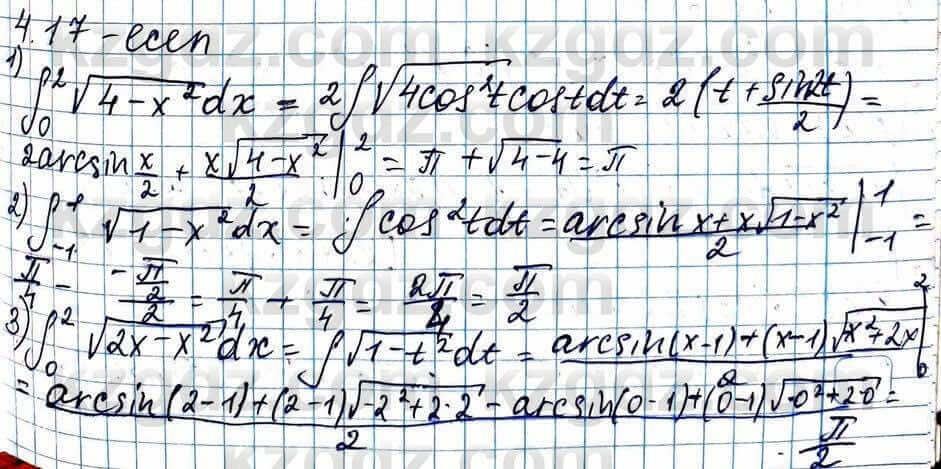 4.17-есеп
1) ∫₀² √(4-x²) dx = 2∫√(4cos²t) cost dt = 2(t + sin2t/2) =
2arcsin x/2 + x√(4-x²)/2 |₀² = π + √(4-4) = π
2) ∫₋₁¹ √(1-x²) dx = ∫cos²t dt = (arcsin x + x√(1-x²))/2 |₋₁¹ =
π/4 - (-π/2)/2 = π/4 + π/4 = 2π/4 = π/2
3) ∫₀² √(2x-x²) dx = ∫√(1-t²) dt = (arcsin(x-1)+(x-1)√(-x²+2x))/2 |₀²
= (arcsin(2-1)+(2-1)√(-2²+2·2) - arcsin(0-1)+(0-1)√(-0²+2·0))/2 =
π/2
kzgdz.com